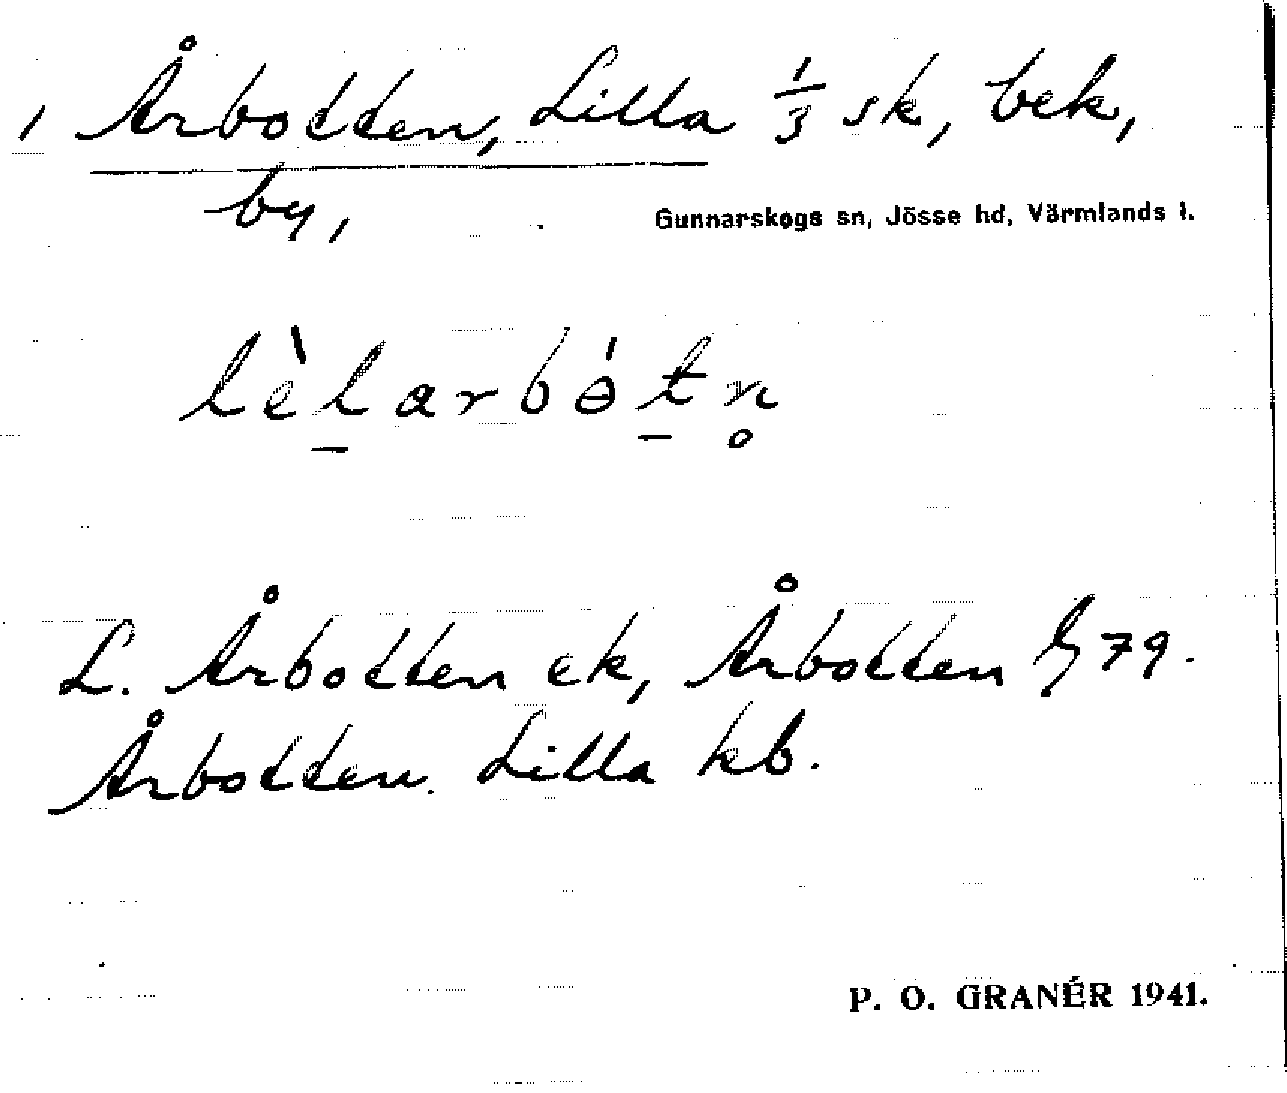 1 Årbotten, Lilla 1/3 sk, bek,
by,
Gunnarskogs sn, Jösse hd, Värmlands l.
lèl̠arbɵ́t̠n̥
L. Årbotten ek, Årbotten 79.
Årbotten. Lilla kb.
P. O. GRANÉR 1941.